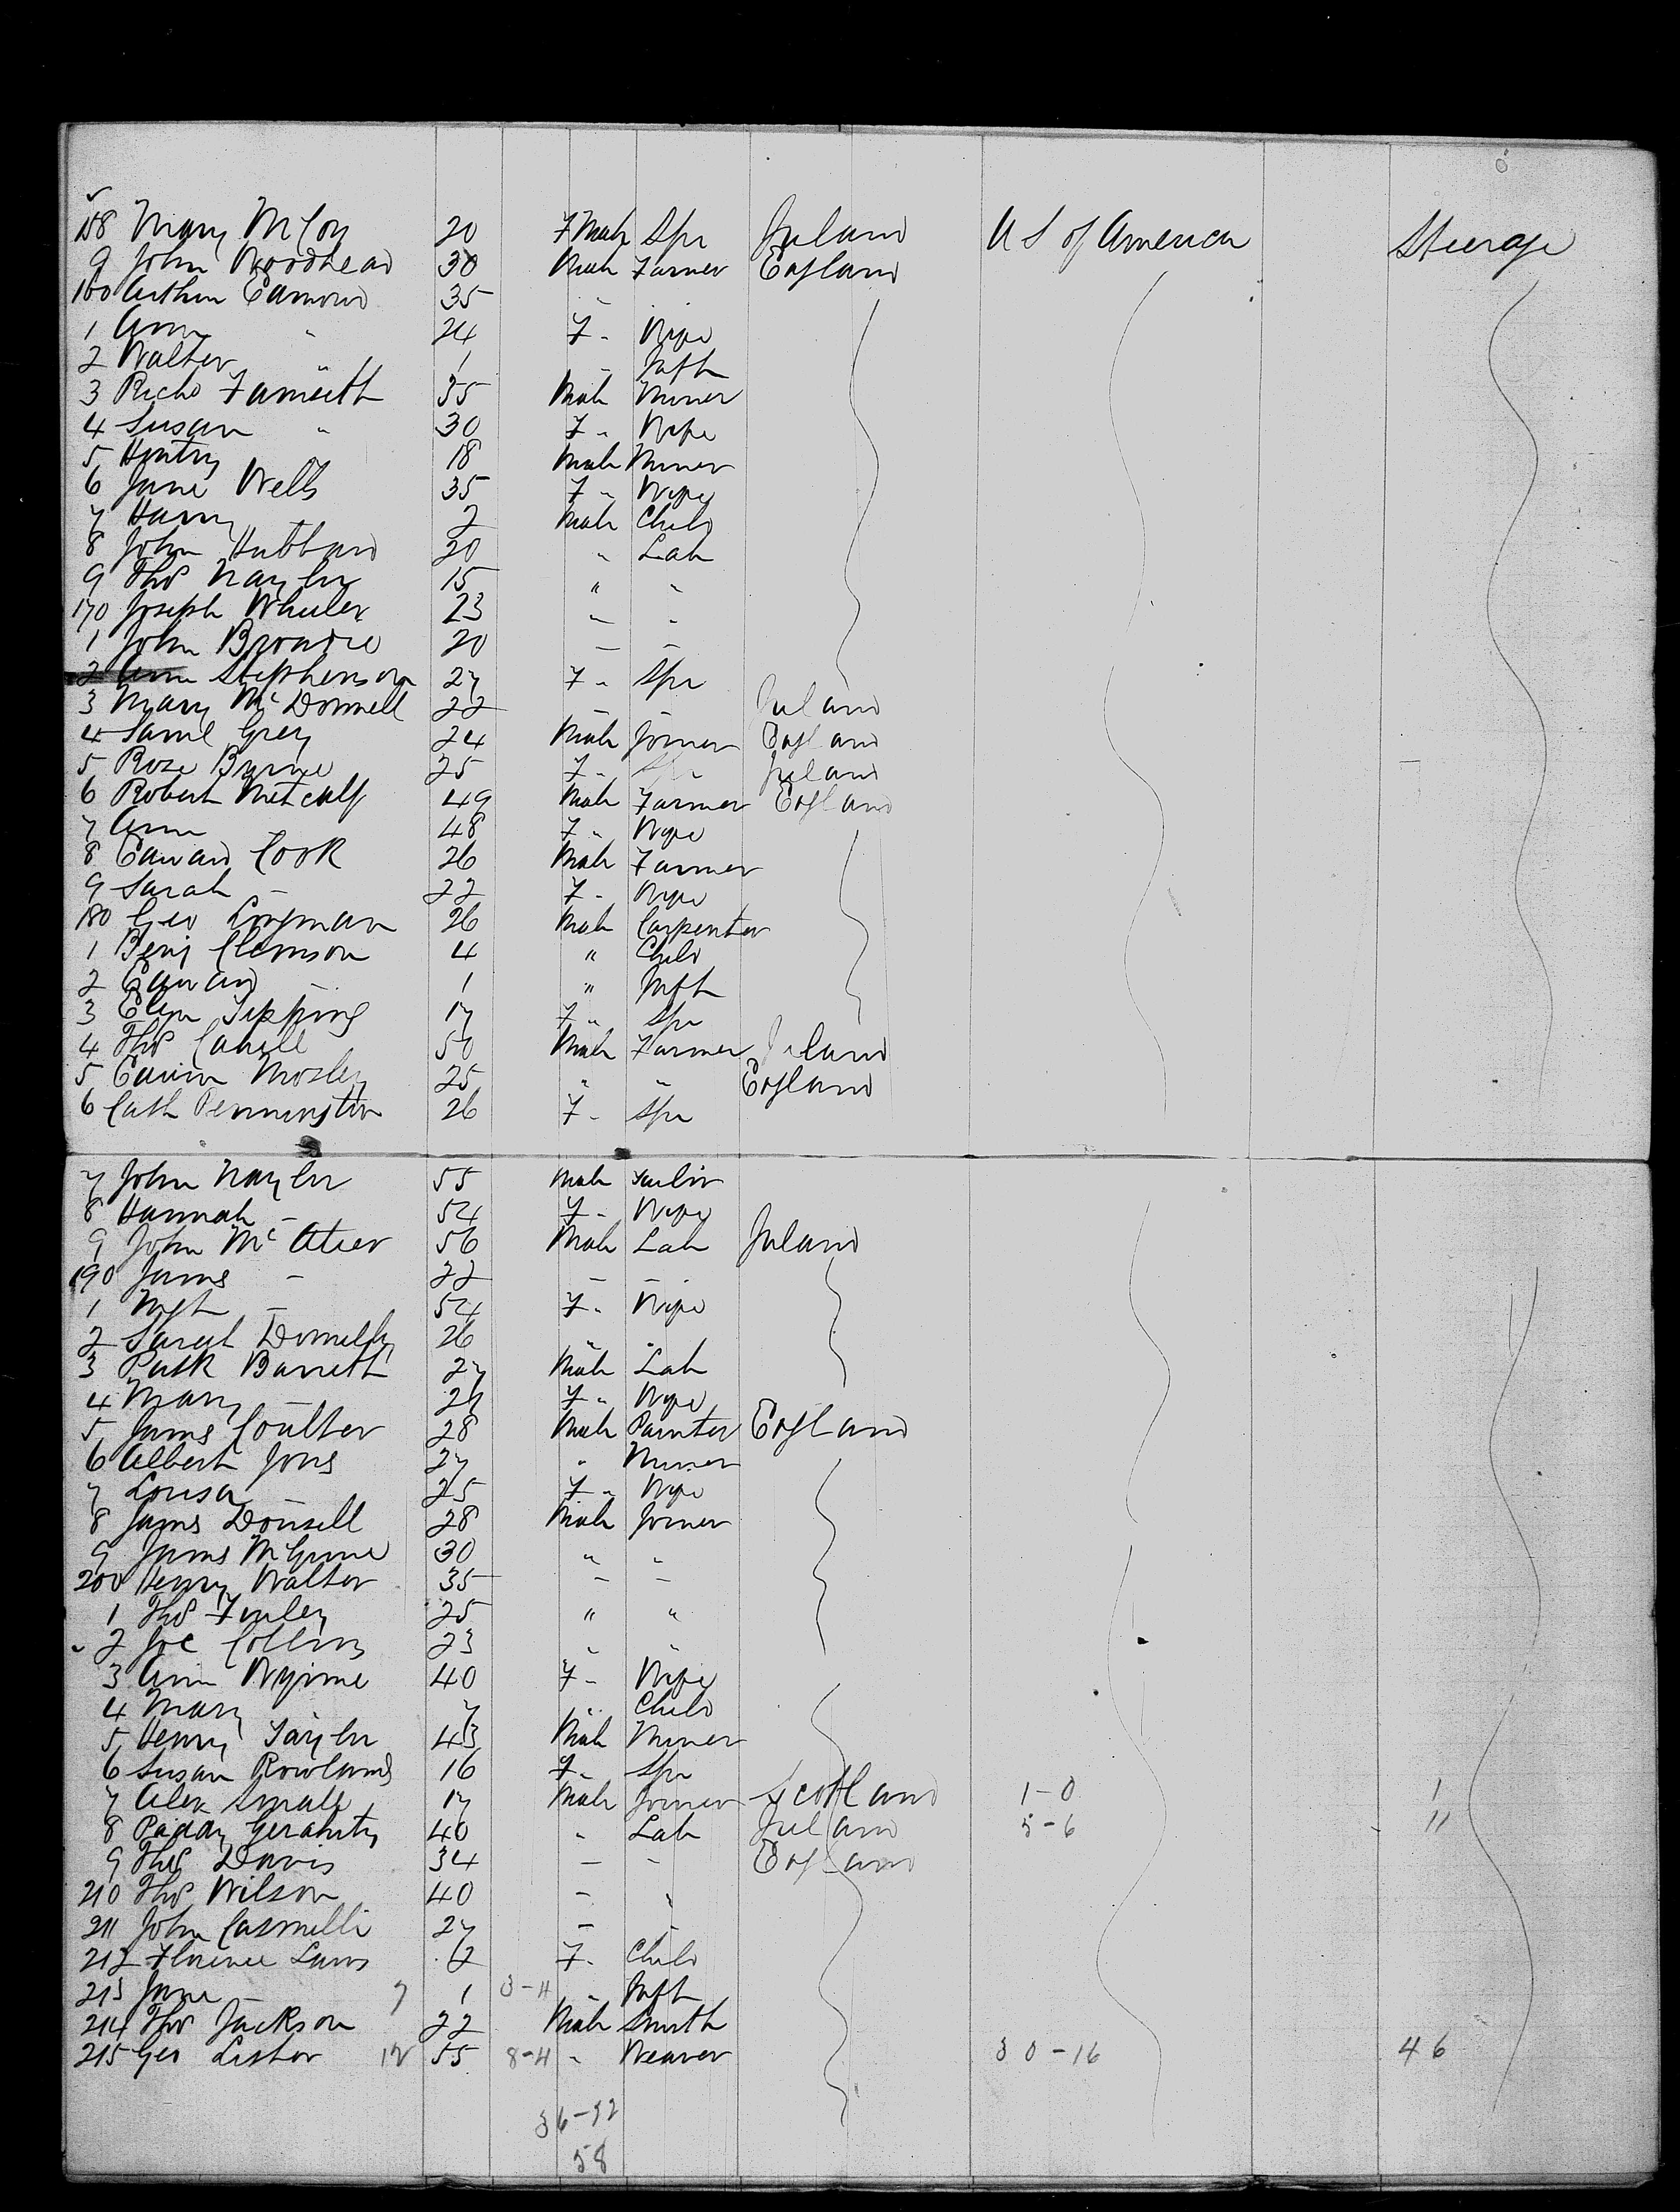 158 Mary McCoy 20 FMale Spr Ireland U S of America Steerage
9 John Woodhead 30 Male Farmer England
160 Arthur Edmond 35 " "
1 Ann " 24 F " Wife
2 Walter " 1 " Inft
3 Richd 35 Male Miner
4 Susan " 30 F " Wife
5 Henry " 18 Male Miner
6 Jane Wells 35 F " Wife
7 Harry 2 Male Child
8 John Hubbard 20 " Lab
9 Thos Naylor 15 " "
170 Joseph Wheeler 23 " "
1 John Browne 20 " "
2 Ann Stephenson 27 F " Spr
3 Mary McDonnell 22 " " Ireland
4 Saml Grey 24 Male Joiner England
5 Rose Byrne 25 F " Spr Ireland
6 Robert Metcalf 49 Male Farmer England
7 Ann 48 F " Wife
8 Edward Cook 26 Male Farmer
9 Sarah - 22 F " Wife
180 Geo Longman 26 Male Carpenter
1 Benj Clemson 4 " Child
2 Edward - 1 " Inft
3 Eliza Tipping 17 F " Spr
4 Thos Cahill 50 Male Farmer Ireland
5 Edwin Mosley 25 " " England
6 Cath Pennington 26 F " Spr
7 John Naylor 55 Male Tailor
8 Hannah - 54 F " Wife
9 John McAteer 56 Male Lab Ireland
190 James - 22 - -
1 Mgt - 54 F " Wife
2 Sarah Donnelly 26 " "
3 Patk Barrett 27 Male Lab
4 Mary - 27 F " Wife
5 James Coulter 28 Male Painter England
6 Albert Jones 27 " Miner
7 Louisa - 25 F " Wife
8 James Donsell 28 Male Joiner
9 James 30 " "
200 Henry Walter 35 - -
1 Thos Finley 25 " "
2 Joe Collins 23 " "
3 Ann Wynne 40 F - Wife
4 Mary 7 " Child
5 Henry Taylor 43 Male Miner
6 Susan Rowlands 16 F - Spr
7 Alex Small 17 Male Joiner Scotland 1-0 1
8 Paddy Geraherty 40 " Lab Ireland 5-6 11
9 Thos Davis 34 - - England
210 Thos Wilson 40 - "
211 John 27 - -
212 Florence Laws F - Child
213 Jane - 7 1 3-4 " Inft
214 Thos Jackson 22 Male Smith
215 Geo Lister 12 55 8-4 " Weaver 30-16 46
36-52
58